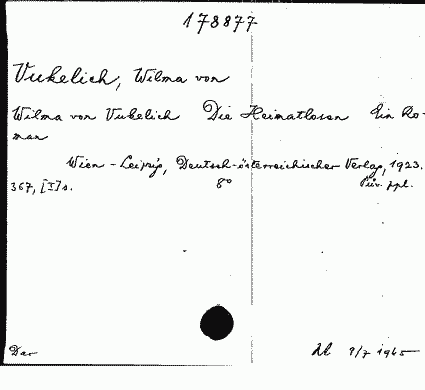 178877
Vukelich, Wilma von
Wilma von Vukelich Die Heimatlosen Ein Ro-
man
Wien - Leipzig, Deutsch-österreichischer Verlag, 1923.
367, [I] s. 8° Püv. ppl.
Dar 9/7 1965